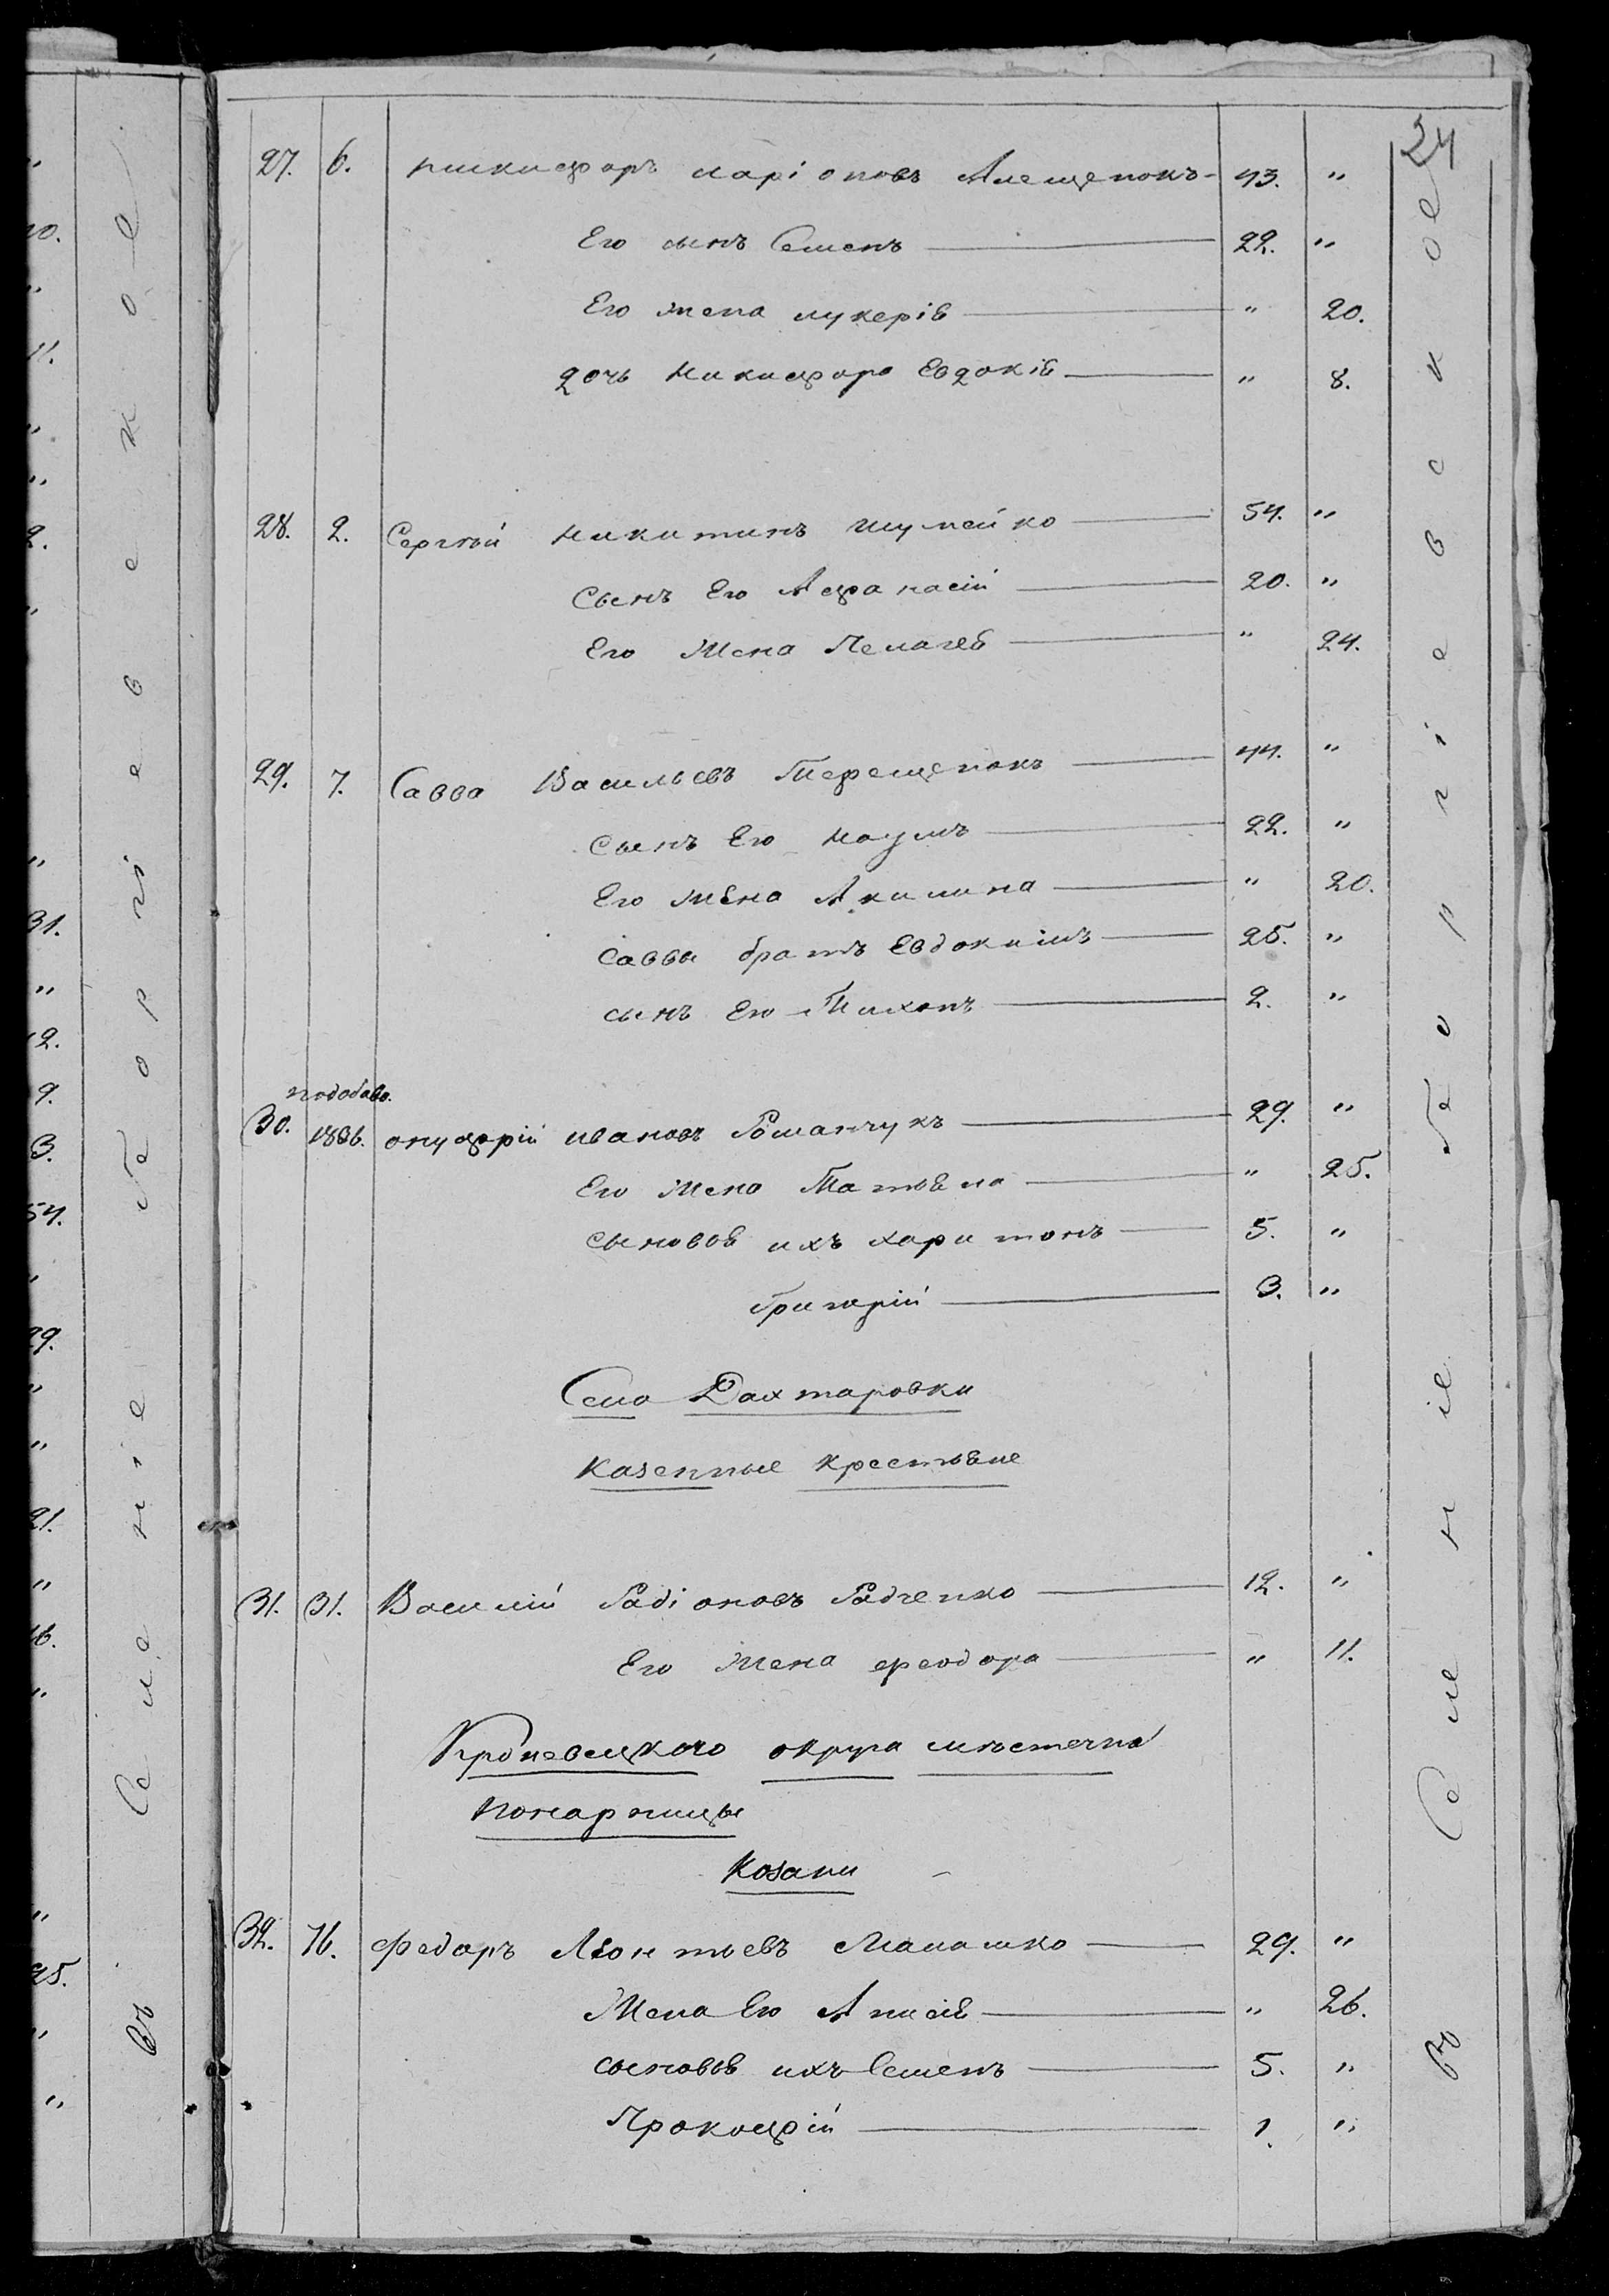 24
27. 6. Никифоръ Иаріоновъ Алещенокъ 43. "
Его сынъ Семенъ 22. "
Его жена лукерія " 20.
дочь Никифора Евдокія " 8.
28. 2. Сергѣй Никитинъ Шулейко 54. "
Сынъ Его Афанасій 20. "
Его Жена Пелагея " 24.
29. 7. Савва Васильевъ Терещенокъ 44. "
Сынъ Его Наумъ 22. "
Его жена Акилина " 20.
Саввы братъ Евдокимъ 25. "
сынъ Его Тихонъ 2. "
подобав.
30. 1836. онуфрій ивановъ Романчукъ 29. "
Его Жена Татьяна " 25.
Сыновья ихъ харитонъ 5. "
Григорій 3. "
Села Дахтаровки
Казенные крестьяне
31. 31. Василій Радіоновъ Радченко 12. "
Его Жена феодора " 11.
Кролевецкого округа мѣстечка
Понорницы
Козаки
32. 76. Федоръ Леонтьевъ Малашко 29. "
Жена Его Анисія " 26.
сыновья ихъ Семенъ 5. "
Прокофій 1. "
Въ Селеніе Георгіевское
Въ Селеніе Георгіевское